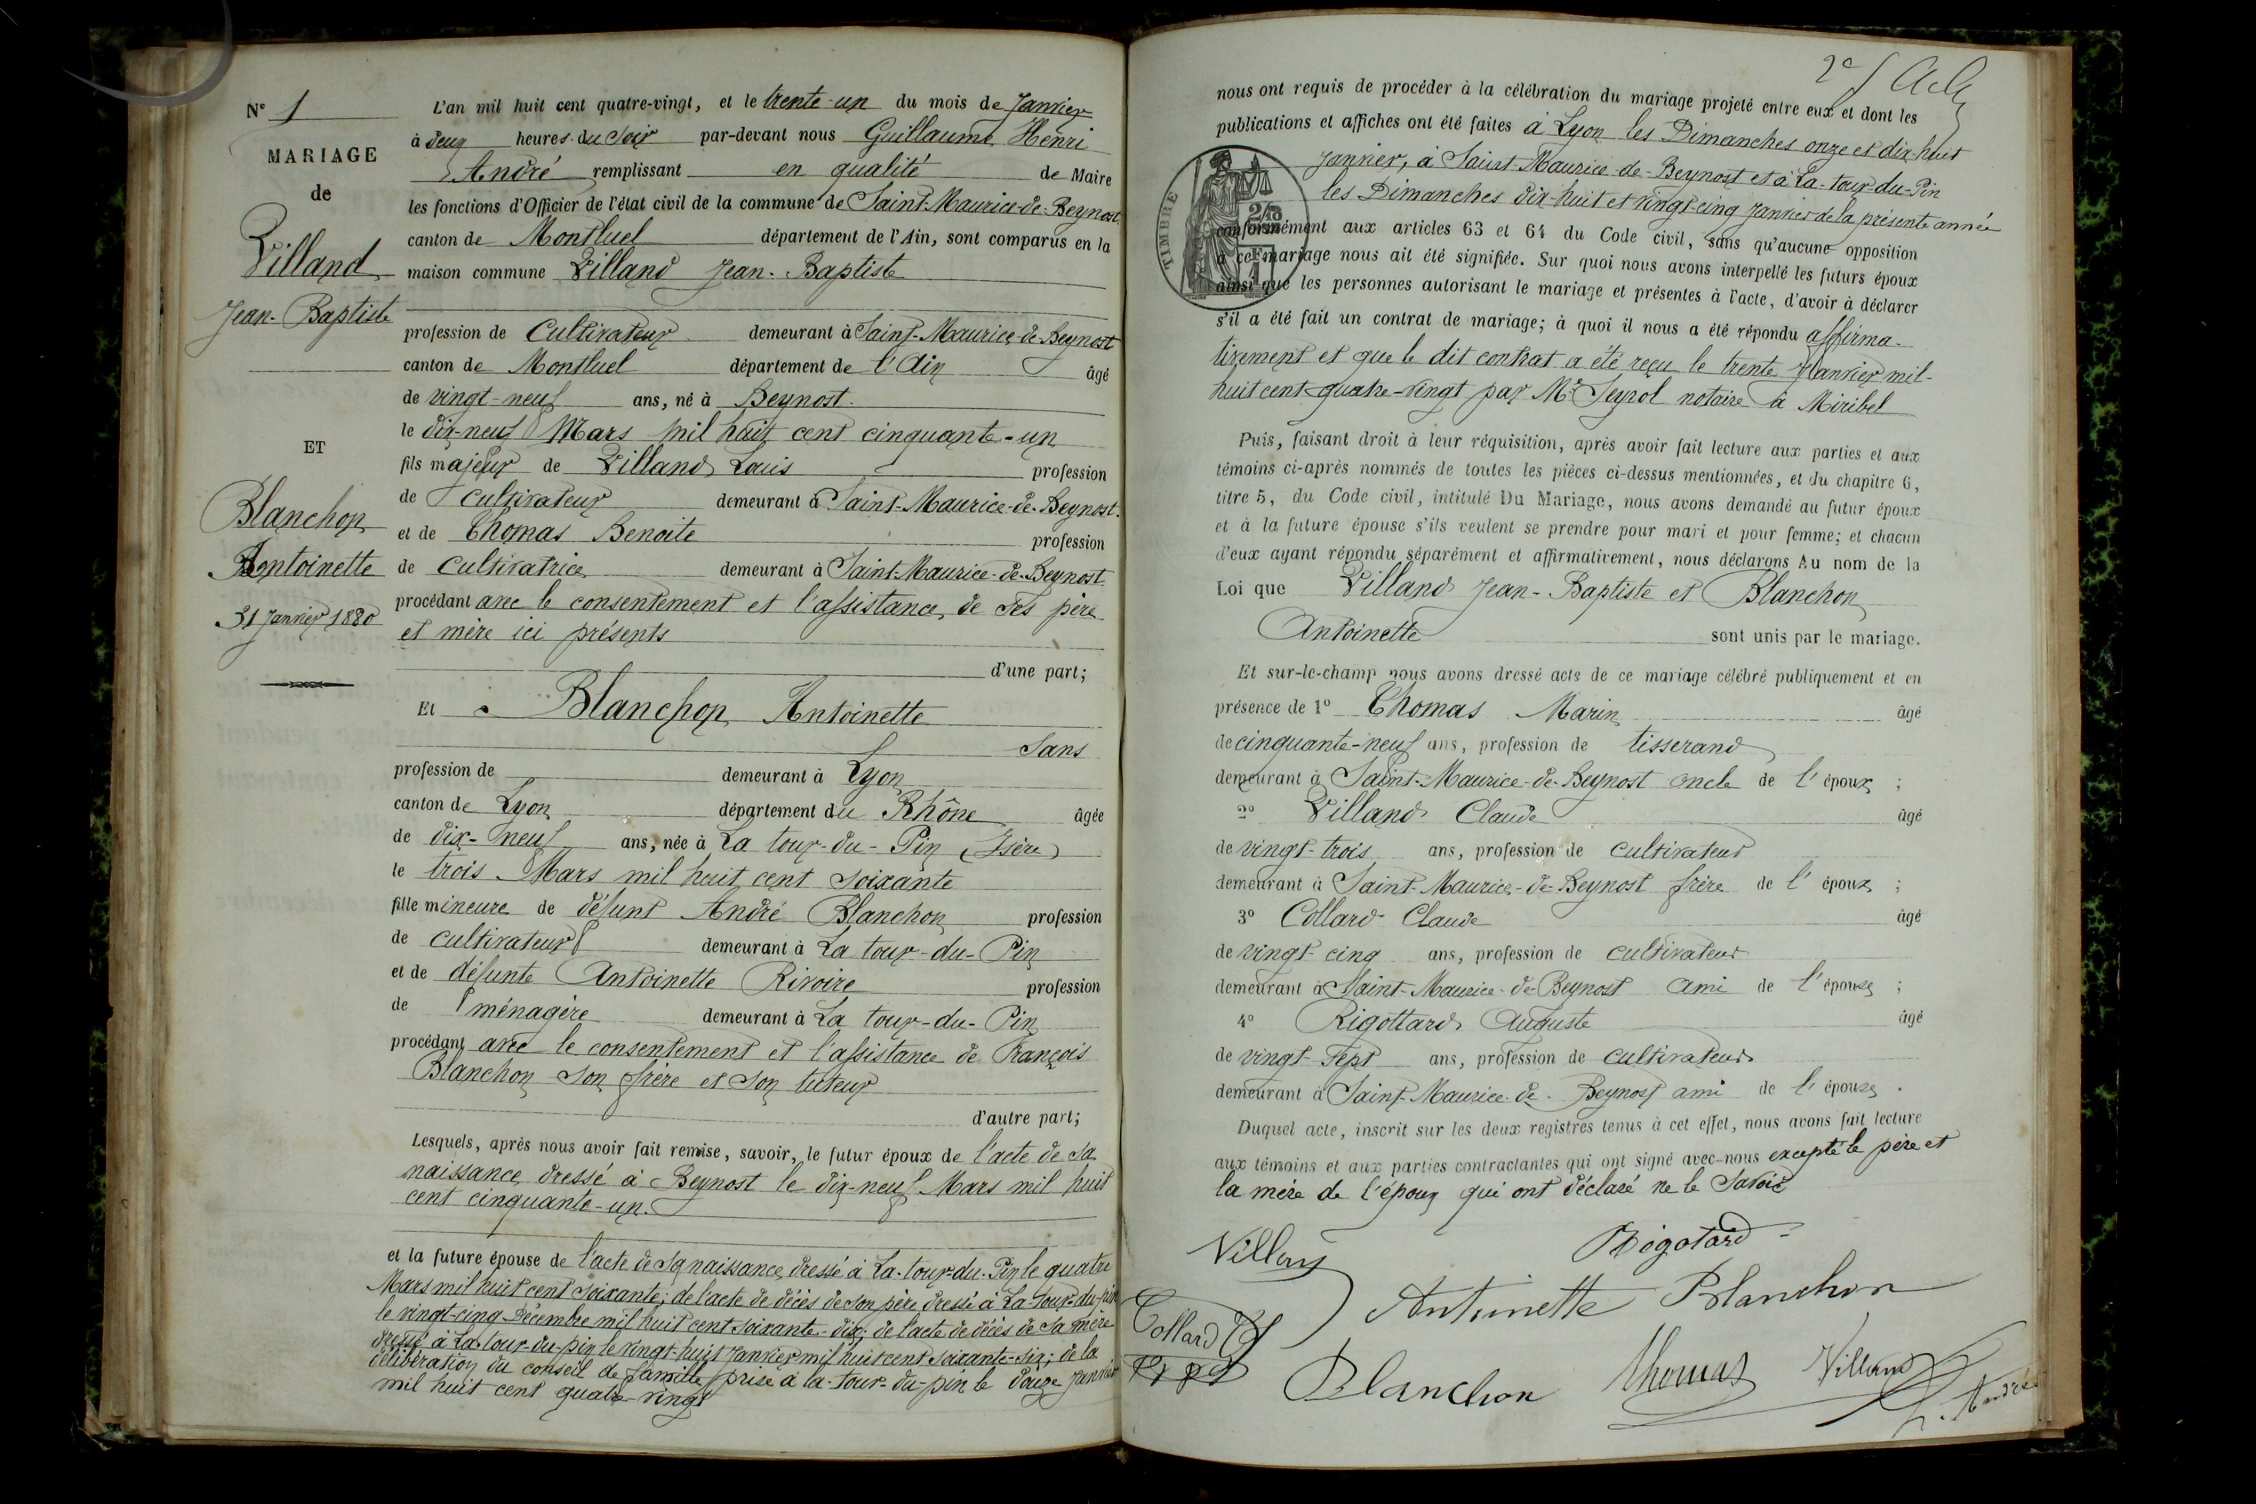 N° 1
MARIAGE
de
Villand
Jean-Baptiste
ET
Blanchon
Antoinette
31 Janvier 1880
L'an mil huit cent quatre-vingt, et le trente-un du mois de Janvier
à deux heures du Soir par-devant nous Guillaume Henri
André remplissant en qualité de Maire
les fonctions d'Officier de l'état civil de la commune de Saint-Maurice-de-Beynost
canton de Montluel département de l'Ain, sont comparus en la
maison commune Villand Jean-Baptiste
profession de Cultivateur demeurant à Saint-Maurice-de-Beynost
canton de Montluel département de l'Ain âgé
de vingt-neuf ans, né à Beynost
le dix-neuf Mars mil huit cent cinquante-un
fils majeur de Villand Louis profession
de cultivateur demeurant à Saint-Maurice-de-Beynost
et de Thomas Benoite profession
de cultivatrice demeurant à Saint-Maurice-de-Beynost
procédant avec le consentement et l'assistance de ses père
et mère ici présents
d'une part;
Et Blanchon Antoinette
Sans
profession de demeurant à Lyon
canton de Lyon département du Rhône âgée
de dix-neuf ans, née à La tour-du-Pin (Isère)
le trois Mars mil huit cent soixante
fille mineure de défunt André Blanchon profession
de cultivateur demeurant à La tour-du-Pin
et de défunte Antoinette Rivoire profession
de ménagère demeurant à La tour-du-Pin
procédant avec le consentement et l'assistance de François
Blanchon son frère et son tuteur
d'autre part;
Lesquels, après nous avoir fait remise, savoir, le futur époux de l'acte de sa
naissance dressé à Beynost le dix-neuf Mars mil huit
cent cinquante-un.
et la future épouse de l'acte de sa naissance dressé à La-tour-du-Pin le quatre
Mars mil huit cent soixante; de l'acte de décès de son père dressé à La-tour-du-pin
le vingt-cinq Décembre mil huit cent soixante-dix; de l'acte de décès de sa mère
dressé à La-tour-du-pin le vingt-huit Janvier mil huit cent soixante-six; de la
délibération du conseil de famille prise à la-tour-du-pin le douze Janvier
mil huit cent quatre-vingt
2e
nous ont requis de procéder à la célébration du mariage projeté entre eux et dont les
publications et affiches ont été faites à Lyon les Dimanches onze et dix-huit
Janvier, à Saint-Maurice-de-Beynost et à La-tour-du-Pin
les Dimanches dix-huit et vingt-cinq Janvier de la présente année
TIMBRE
conformément aux articles 63 et 64 du Code civil, sans qu'aucune opposition
à ce mariage nous ait été signifiée. Sur quoi nous avons interpellé les futurs époux
ainsi que les personnes autorisant le mariage et présentes à l'acte, d'avoir à déclarer
s'il a été fait un contrat de mariage; à quoi il nous a été répondu affirma-
tivement et que le dit contrat a été reçu le trente Janvier mil-
huit cent quatre-vingt par Me Seyrol notaire à Miribel
Puis, faisant droit à leur réquisition, après avoir fait lecture aux parties et aux
témoins ci-après nommés de toutes les pièces ci-dessus mentionnées, et du chapitre 6,
titre 5, du Code civil, intitulé Du Mariage, nous avons demandé au futur époux
et à la future épouse s'ils veulent se prendre pour mari et pour femme; et chacun
d'eux ayant répondu séparément et affirmativement, nous déclarons Au nom de la
Loi que Villand Jean-Baptiste et Blanchon
Antoinette sont unis par le mariage.
Et sur-le-champ nous avons dressé acte de ce mariage célébré publiquement et en
présence de 1° Thomas Marin âgé
de cinquante-neuf ans, profession de tisserand
demeurant à Saint-Maurice-de-Beynost oncle de l'époux ;
2° Villand Claude âgé
de vingt-trois ans, profession de cultivateur
demeurant à Saint-Maurice-de-Beynost frère de l'époux ;
3° Collard Claude âgé
de vingt cinq ans, profession de cultivateur
demeurant à Saint-Maurice-de-Beynost ami de l'époux ;
4° Rigottard Auguste âgé
de vingt-sept ans, profession de cultivateur
demeurant à Saint-Maurice-de-Beynost ami de l'époux .
Duquel acte, inscrit sur les deux registres tenus à cet effet, nous avons fait lecture
aux témoins et aux parties contractantes qui ont signé avec nous excepté le père et
la mère de l'époux qui ont déclaré ne le savoir
Villand
Rigotard
Antoinette Blanchon
Collard
Blanchon
Thomas
Villand
h. André